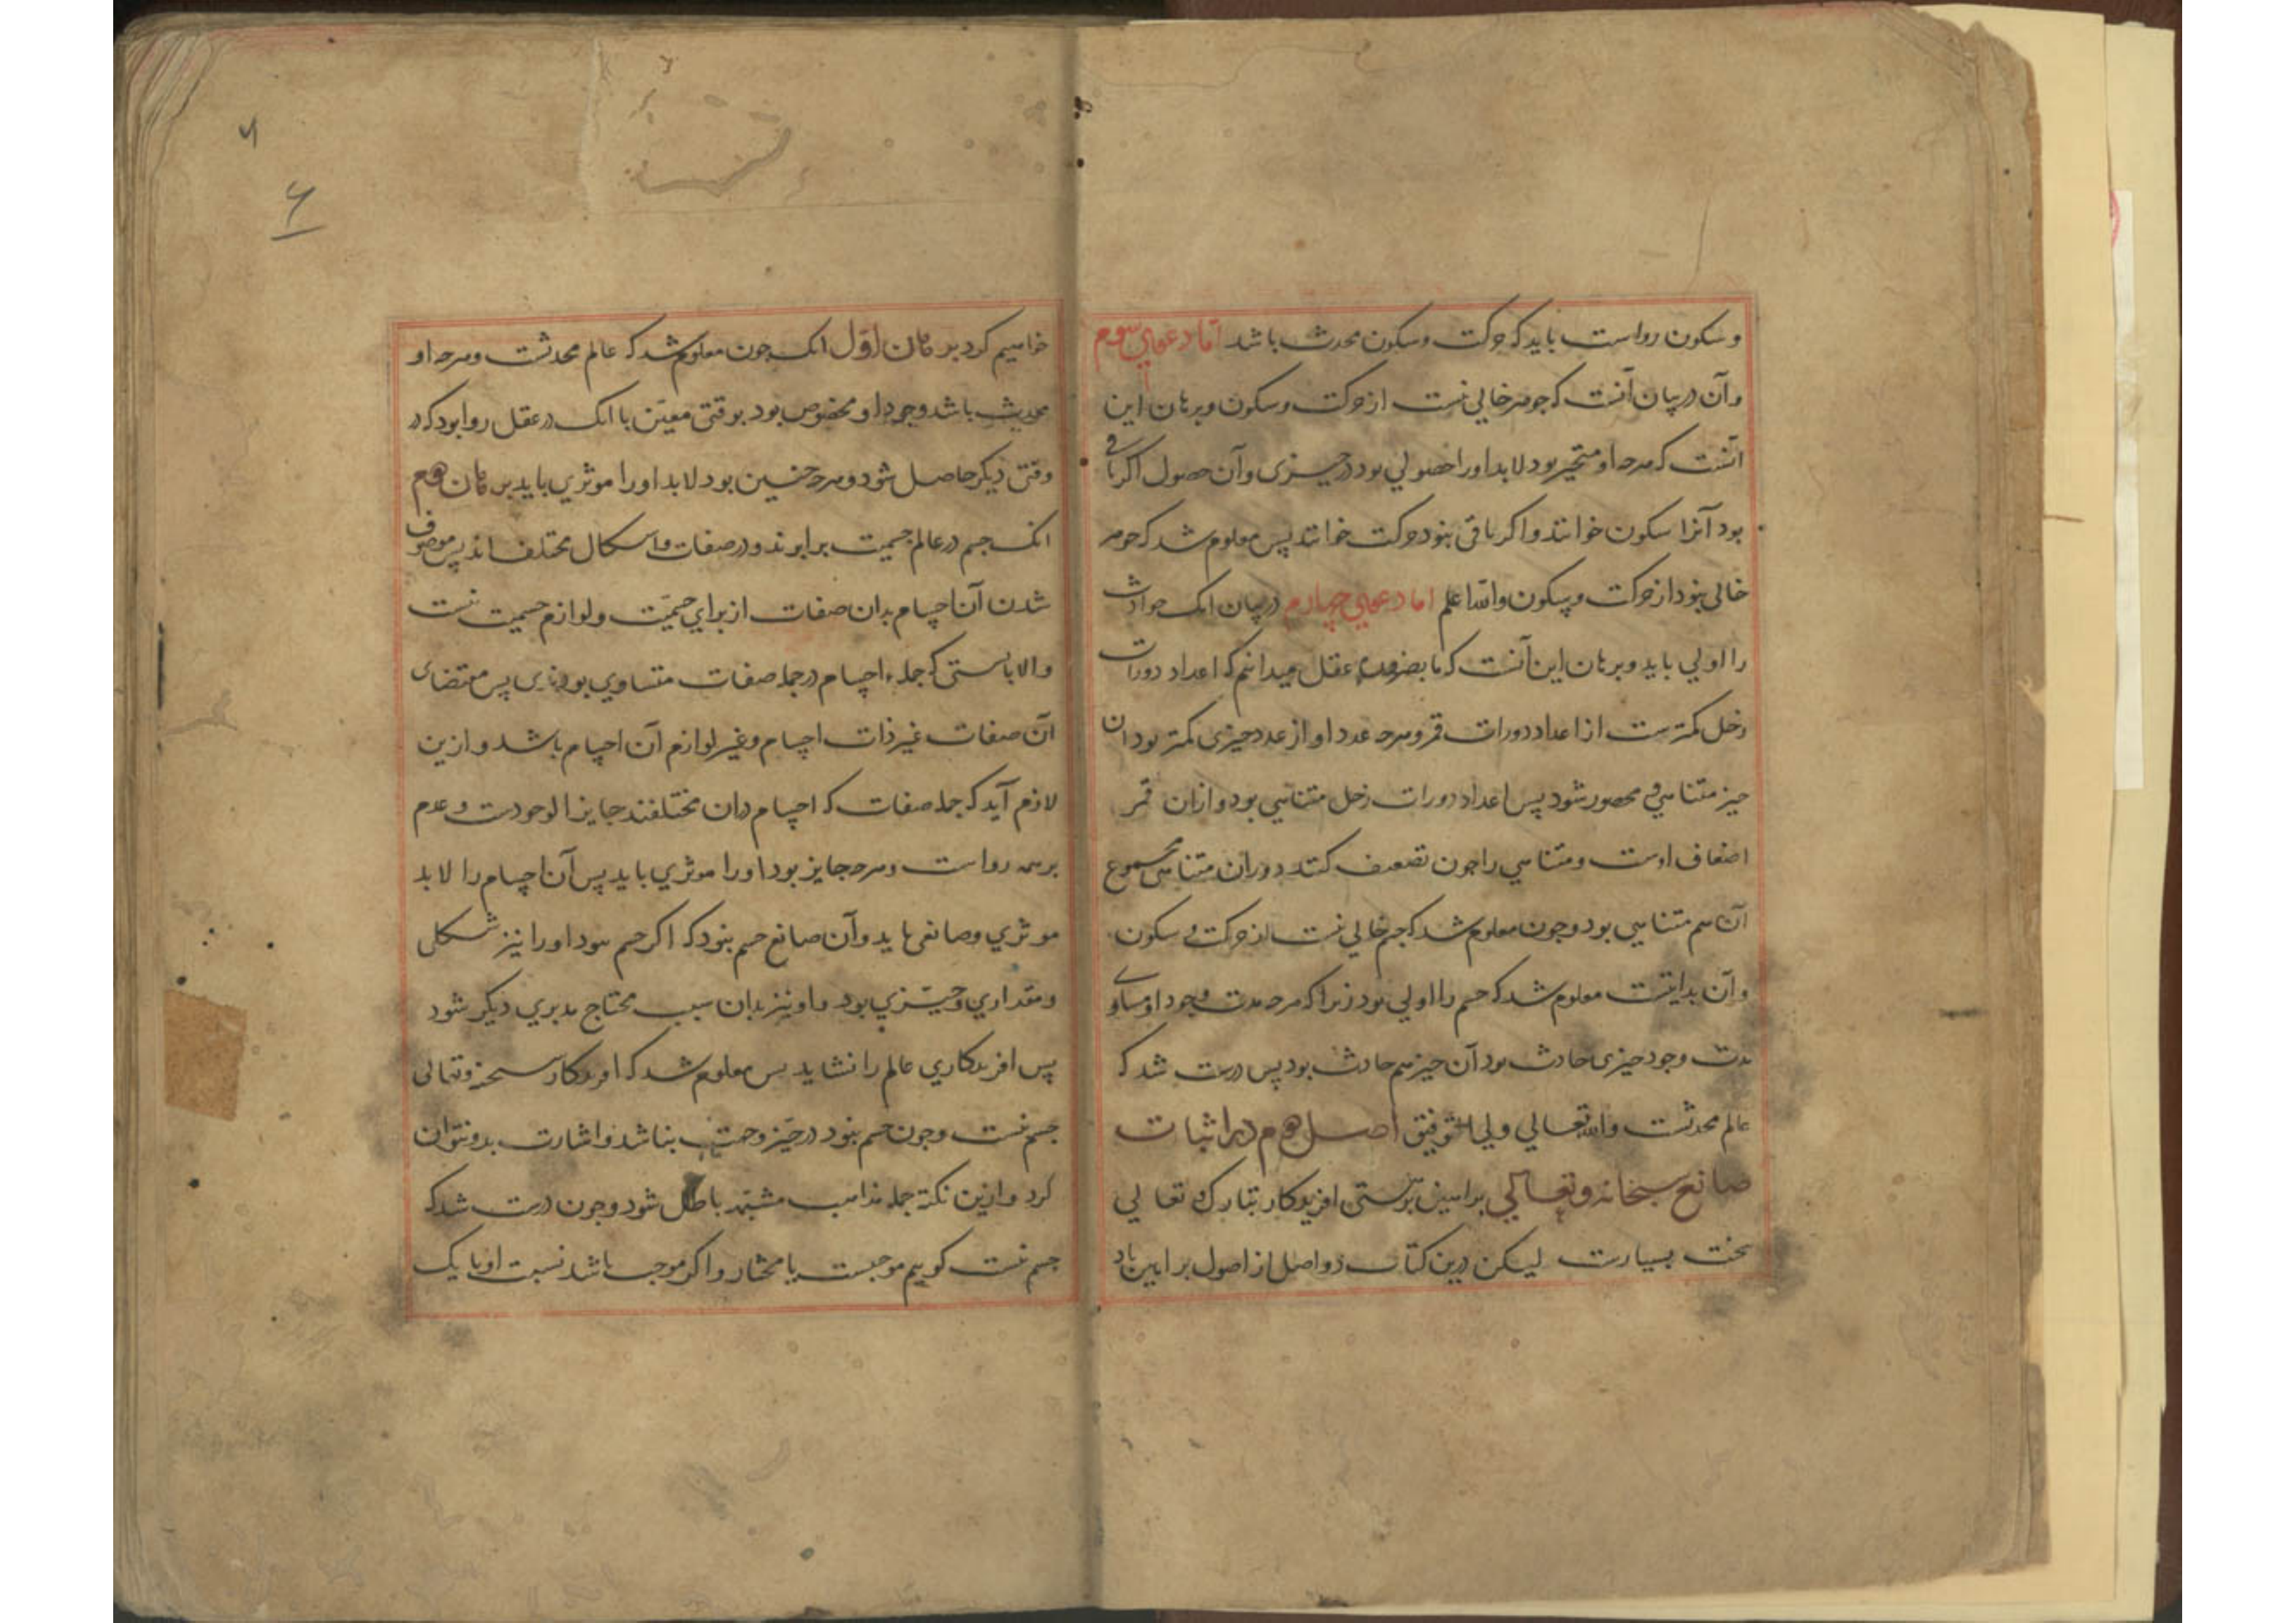 و سکون رواست باید که حرکت و سکون محدث باشد اما دعوای سوم
وآن در بیان آنست که جوهر خالی نیست از حرکت و سکون و برهان این
آنست که هرچه او متحیز بود لابد او را حصولی بود در حیزی وآن حصول اکر باقی
بود آنرا سکون خوانند واکر باقی نبود حرکت خوانند پس معلوم شد که جوهر
خالی نبود از حرکت و سکون والله اعلم اما دعوای چهارم در بیان انک حوادث
را اولی باید و برهان این آنست که ما بضرورت عقل میدانیم که اعداد دورات
زحل کمترست از اعداد دورات قمر و هرچه عدد او از عدد چیزی کمتر بود ان
چیز متناهی و محصور شود پس اعداد دورات زحل متناهی بود و ازان قمر
اضعاف اوست و متناهی را چون تضعیف کنند دوران متناهی مجموع
آن هم متناهی بود وچون معلوم شد که جسم خالی نیست از حرکت و سکون
وآن بدایتست معلوم شد که جسم را اولی بود زیرا که هرچه مدت وجود او مساوی
مدت وجود چیزی حادث بود آن چیز هم حادث بود پس درست شد که
عالم محدثست والله تعالی ولی التوفیق اصل دوم در اثبات
صانع سبحانه وتعالی براهین برهستی افریدکار تبارک تعالی
سخت بسیارست لیکن درین کتاب دو اصل از اصول براهین یاد
خواهیم کرد برهان اول انک چون معلوم شد که عالم محدثست و هرچه او
محدث باشد وجود او مخصوص بود بوقتی معین با انک در عقل روا بود که در
وقتی دیکر حاصل شود و هرچه چنین بود لابد او را موثری باید برهان دوم
انک جسم در عالم جسمیت برابرند و در صفات و اشکال مختلف اند پس موصوف
شدن آن اجسام بدان صفات از برای جسمیت و لوازم جسمیت نیست
والا بایستی که جمله اجسام در جمله صفات متساوی بودندی پس مقتضای
آن صفات غیر ذات اجسام و غیر لوازم آن اجسام باشد و ازین
لازم آید که جمله صفات که اجسام دران مختلفند جایز الوجودست و عدم
برهمه رواست و هرچه جایز بود او را موثری باید پس آن اجسام را لابد
موثری و صانعی باید وآن صانع جسم نبود که اکر جسم بود او را نیز شکلی
ومقداری و حیزی بود و او نیز بدان سبب محتاج مدبری دیکر شود
پس افریدکاری عالم را نشاید پس معلوم شد که افریدکار سبحنه وتعالی
جسم نیست وچون جسم نبود در حیز و جهت نباشد و اشارت بدو نتوان
کرد و ازین نکته جمله مذاهب مشبهه باطل شود وچون درست شد که
جسم نیست کوییم موجبست یا مختار و اکر موجب باشد نسبت او با یک
۶